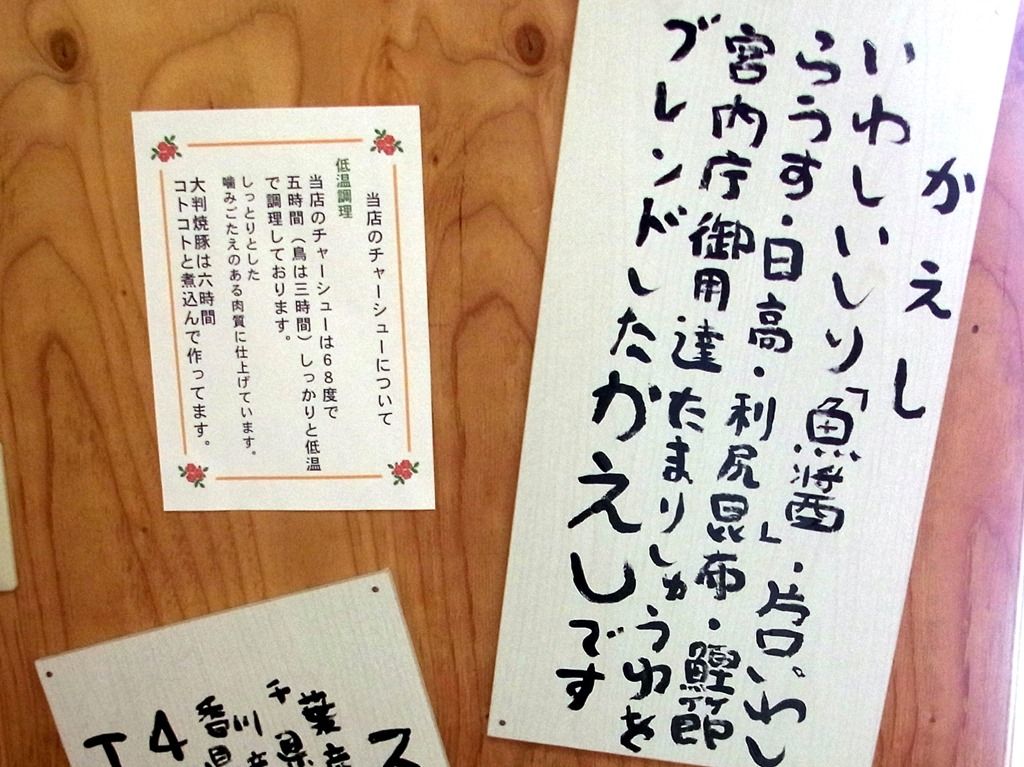 かえし
いわしいしり「魚醤」・片口いわし
らうす・日高・利尻昆布・鰹節
宮内庁御用達たまりしょうゆを
ブレンドしたかえしです
当店のチャーシューについて
低温調理
当店のチャーシューは68度で
五時間（鳥は三時間）しっかりと低温
で調理しております。
しっとりとした
噛みごたえのある肉質に仕上げています。
大判焼豚は六時間
コトコトと煮込んで作ってます。
ス
千葉産
県
香川産
県
T4